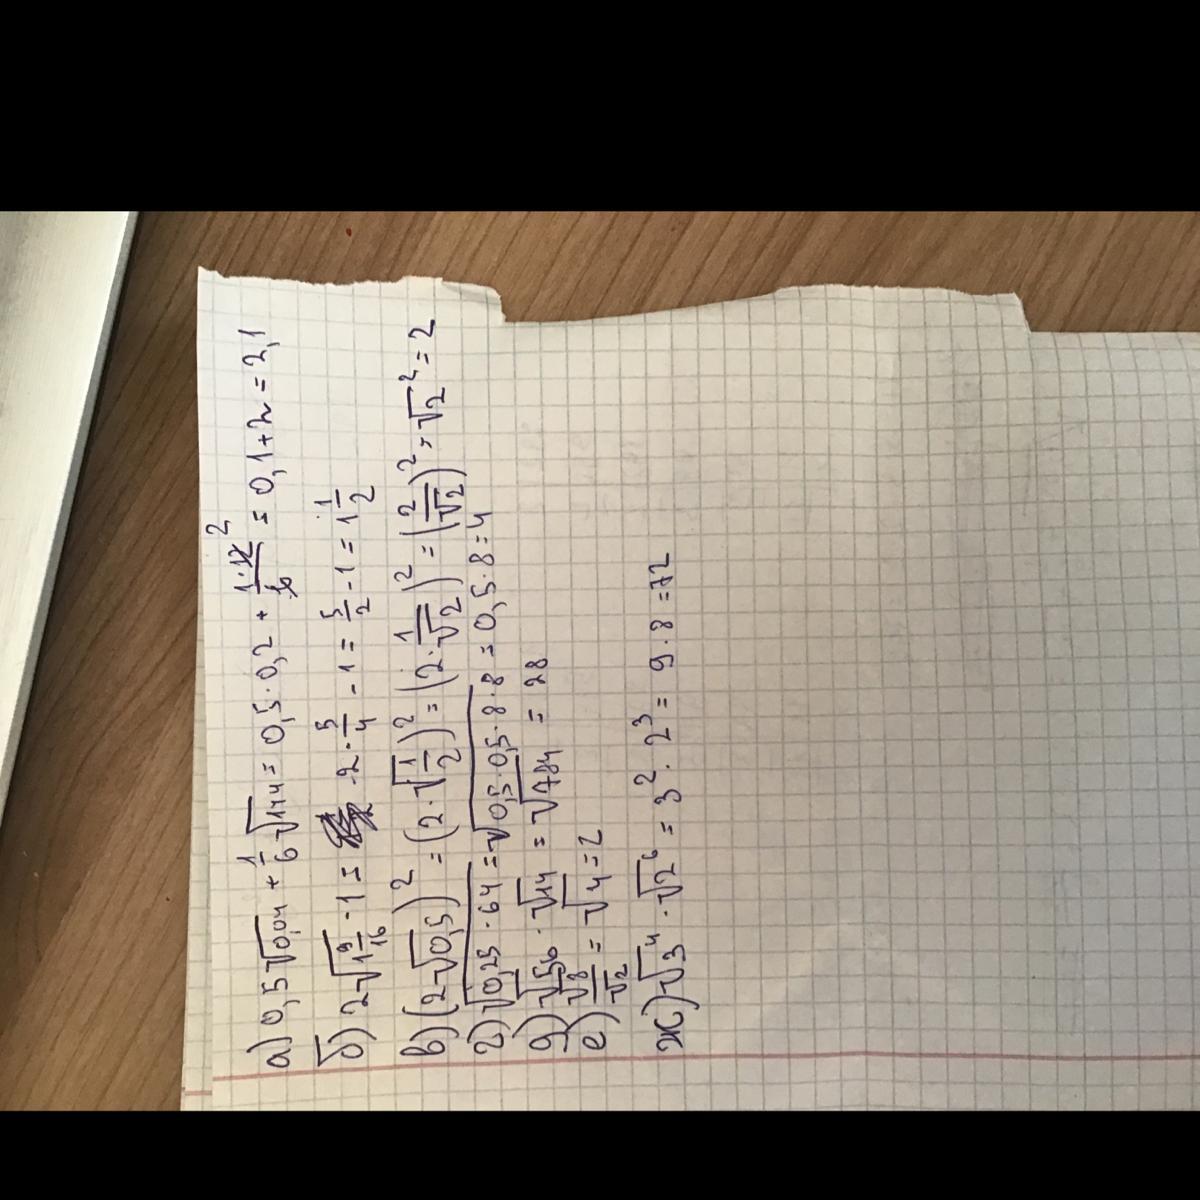 а) 0,5√0,04 + 1/6 √144 = 0,5·0,2 + 1·12/6 2 = 0,1+2 = 2,1
б) 2√1 9/16 - 1 = 2·5/4 - 1 = 5/2 - 1 = 1 1/2
в) (2√0,5)² = (2·√1/2)² = (2·1/√2)² = (2/√2)² = √2² = 2
г) √0,25·64 = √0,5·0,5·8·8 = 0,5·8=4
д) √56·√14 = √784 = 28
е) √8/√2 = √4=2
ж) √3⁴·√2⁶ = 3²·2³ = 9·8=72